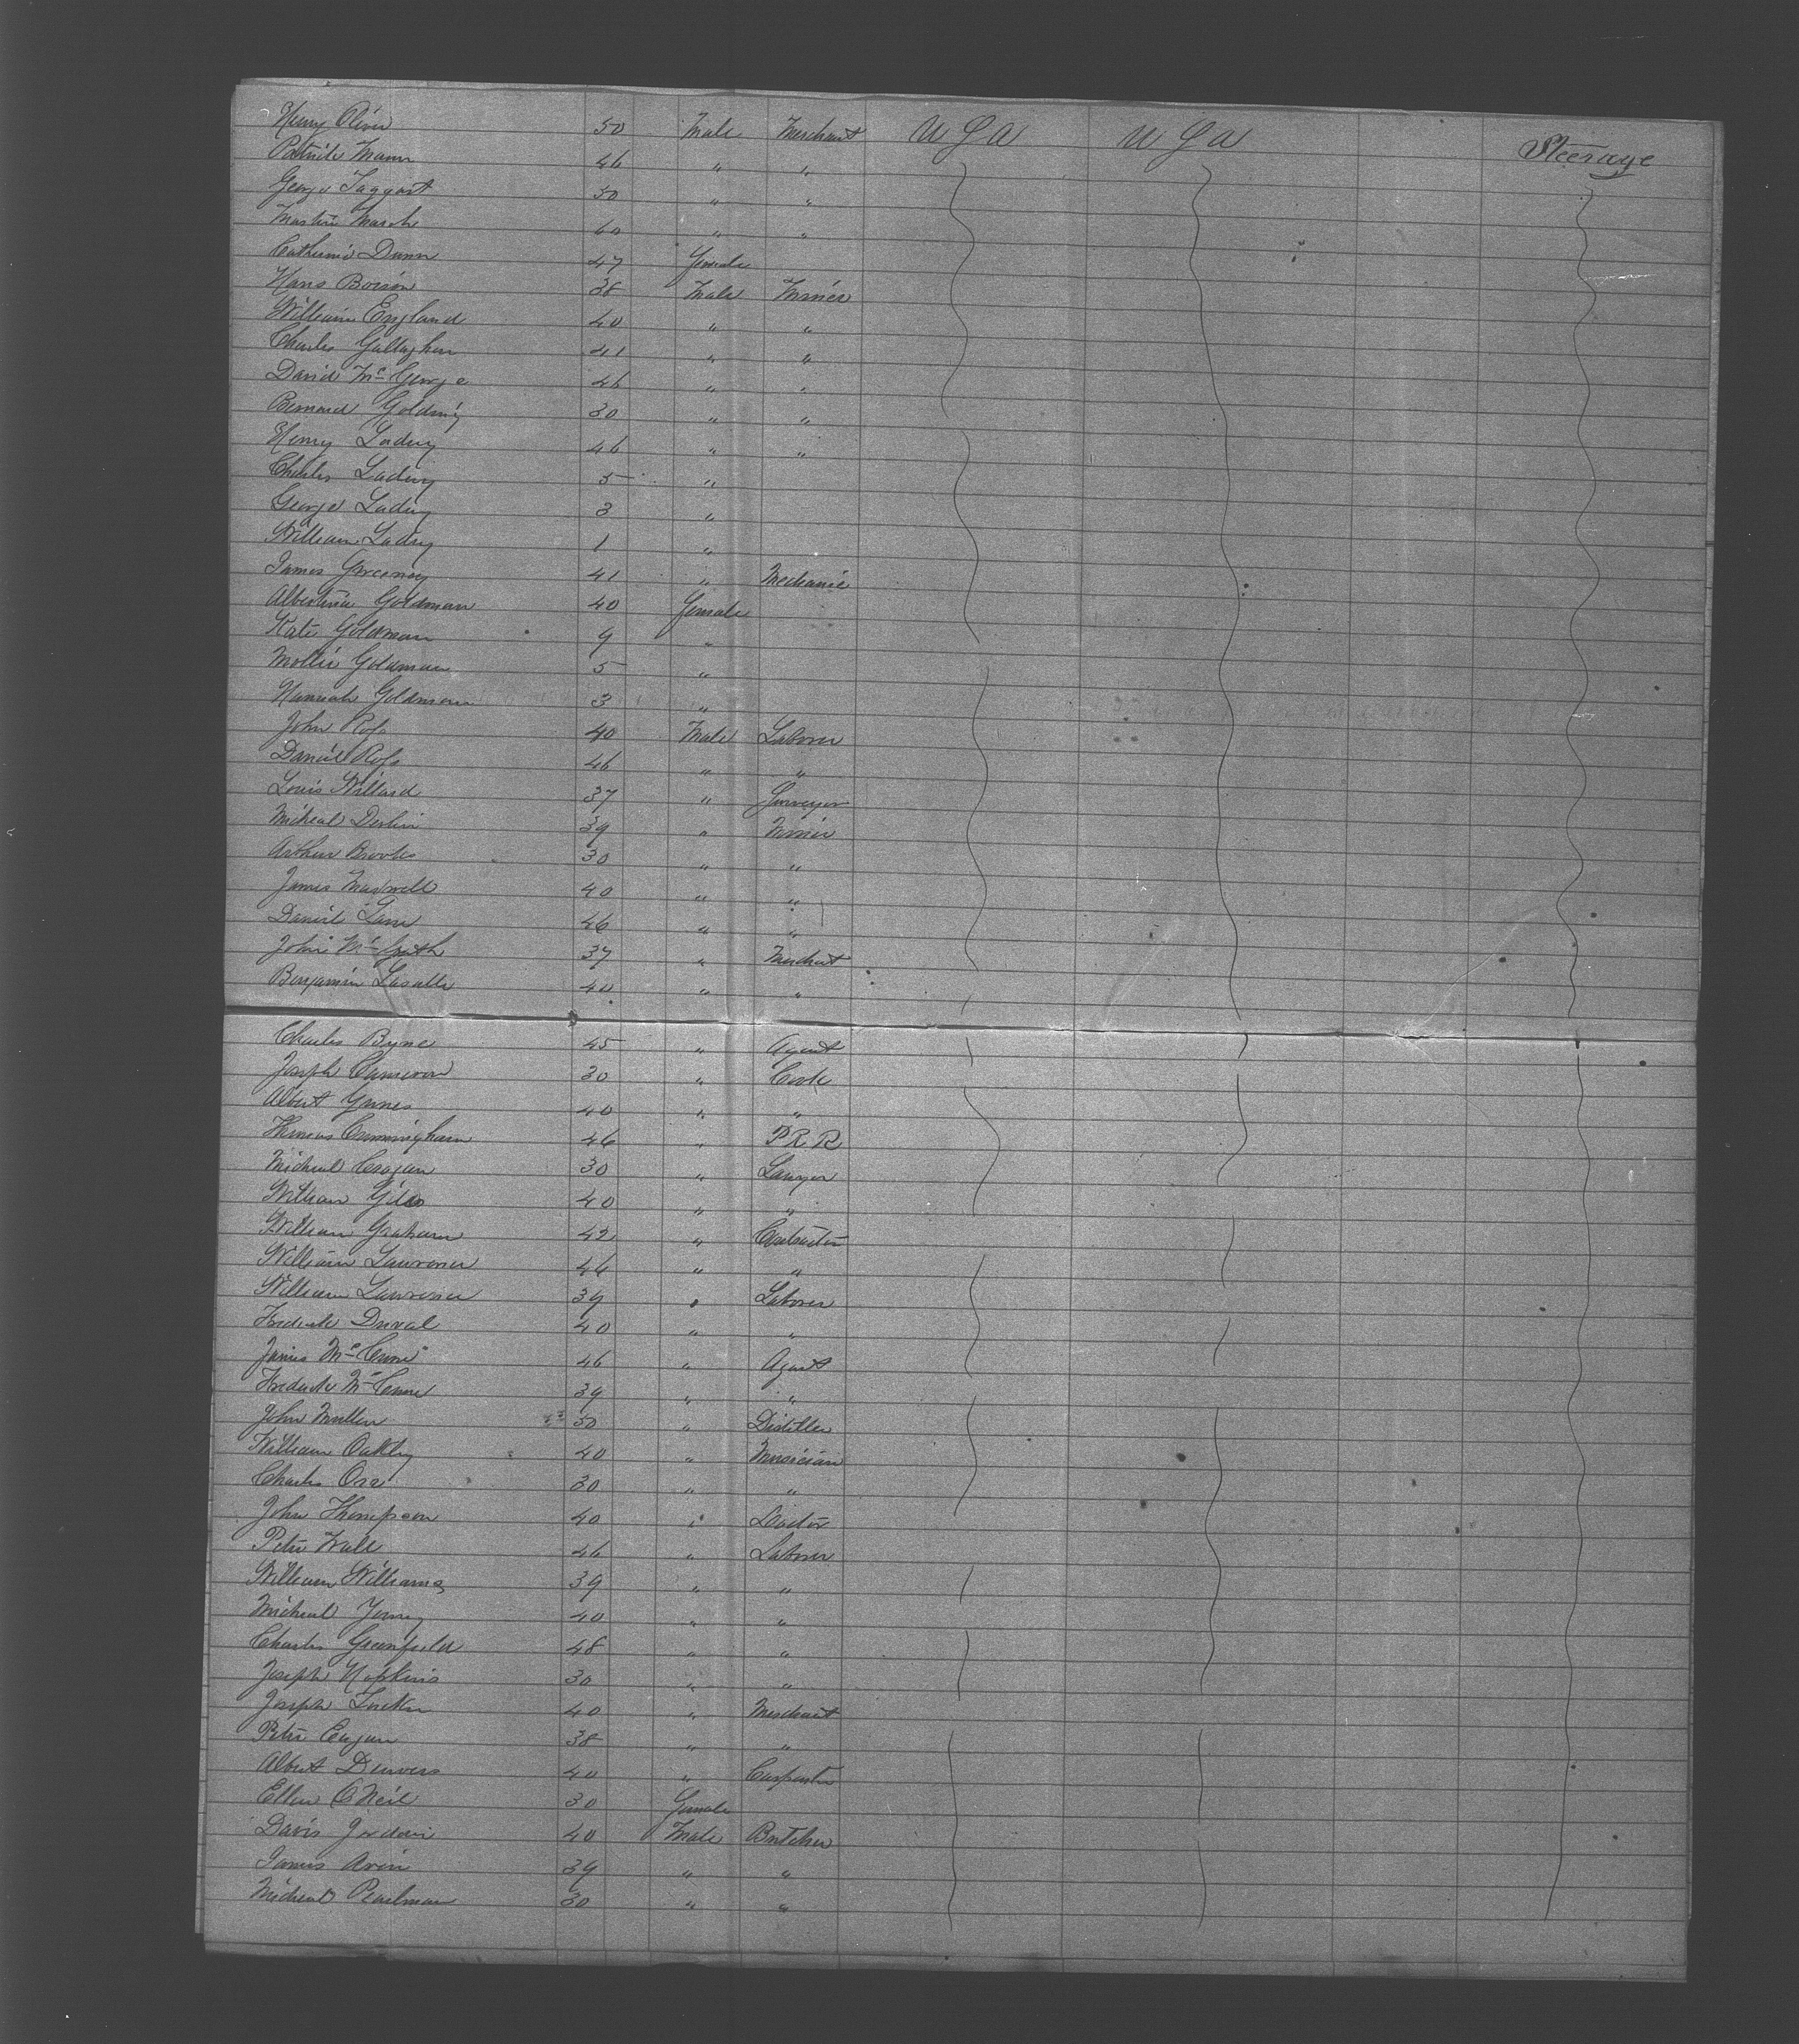 Henry Oliver 50 Male Merchant U S A U S A Steerage
Patrick Mann 46 " "
George Taggart 50 " "
Martin Marsh 60 " "
Catherine Dunn 47 Female
Hans 38 Male Miner
William England 40 " "
Charles Gallagher 41 " "
David McGeorge 46 " "
Bernard Golding 30 " "
Henry 46 " "
Charles 5 "
George 3 "
William 1 "
James Greenway 41 " Mechanic
Albertina Goldman 40 Female
Kate Goldman 9 "
Mollie Goldman 5 "
Hannah Goldman 3 "
John Ross 40 Male Laborer
Daniel Ross 46 " "
Louis Willard 37 " Surveyor
Micheal Devlin 39 " Miner
Arthur Brooks 30 " "
James Maxwell 40 " "
Daniel Lane 46 " "
John 37 " Merchant
Benjamin Lasalle 40 " "
Charles Byrne 45 " Agent
Joseph Cameron 30 " Cook
Albert 40 " "
Thomas Cunningham 46 " P R R
Micheal 30 " Lawyer
William Giles 40 " "
William Graham 42 " Contractor
William Lawrence 46 " "
William Lawrence 39 " Laborer
Frederick Duval 40 " "
James McCune 46 " Agent
Frederick McCune 39 " "
John Mullen 50 " Distiller
William Oakley 40 " Musician
Charles 30 " "
John Thompson 40 " Doctor
Peter Wall 46 " Laborer
William Williams 39 " "
Micheal Young 40 " "
Charles Greenfield 48 " "
Joseph Hopkins 30 " "
Joseph 40 " Merchant
Peter 38 " "
Albert 40 " Carpenter
Ellen O'Neil 30 Female
Davis Jordan 40 Male Butcher
James 39 " "
Micheal Pearlman 30 " "